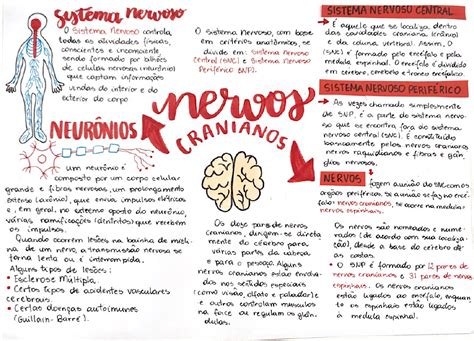 sistema nervoso
O Sistema Nervoso controla
todas as atividades físicas,
consciente e inconsciente
sendo formado por bilhões
de células nervosas (neurônio)
que captam informações
vindas do interior e do
exterior do corpo
NEURÔNIOS
um neurônio é
composto por um corpo celular
grande e fibras nervosas, um prolongamento
extenso (axônio), que envia impulsos elétricos
e, em geral, no extremo oposto do neurônio,
várias ramificações (dendritos) que recebem
os impulsos.
Quando ocorrem lesões na bainha de mieli-
na de um nervo, a transmissão nervosa se
torna lenta ou é interrompida.
Alguns tipos de lesões:
• Esclerose Múltipla,
• Certos tipos de acidentes vasculares
cerebrais.
• Certas doenças autoimunes
(Guillain-Barré).
O Sistema Nervoso, com base
em critérios anatômicos, se
divide em: Sistema Nervoso
Central (SNC) e Sistema Nervoso
Periférico (SNP).
nervos
CRANIANOS
Os doze pares de nervos
cranianos, dirigem-se direta-
mente do cérebro para
várias partes da cabeça,
para o pescoço. Alguns
nervos cranianos estão envolvi-
dos nos sentidos especiais
(como visão, olfato e paladar) e
e outros controlam músculos
na face ou regulam os glân-
dulas.
SISTEMA NERVOSO CENTRAL
É aquele que se localiza dentro
das cavidades craniana (crânio)
e da coluna vertebral. Assim, o
(SNC) é formado pelo encéfalo e pela
medula espinhal. O encéfalo é dividido
em cérebro, cerebelo e tronco encefálico.
SISTEMA NERVOSO PERIFÉRICO
As vezes chamado simplesmente
de SNP, é a parte do sistema nervo-
so que se encontra fora do sistema
nervoso central (SNC). É constituído
basicamente pelos nervos cranianos,
nervos raquidianos e fibras e gân-
glios nervosos.
NERVOS fazem a união do SNC com os
órgãos periféricos. Se a união se faz no encé-
falo = nervos cranianos, se ocorre na medula =
nervos espinhais.
Os nervos são nomeados e nume-
rados (de acordo com sua localiza-
ção), desde a base do cérebro até
as costas.
• O SNP é formado por 12 pares de
nervos cranianos e 31 pares de nervos
espinhais. Os nervos cranianos
estão ligados ao encéfalo, enquan-
to os nervos espinhais estão ligados
à medula espinhal.